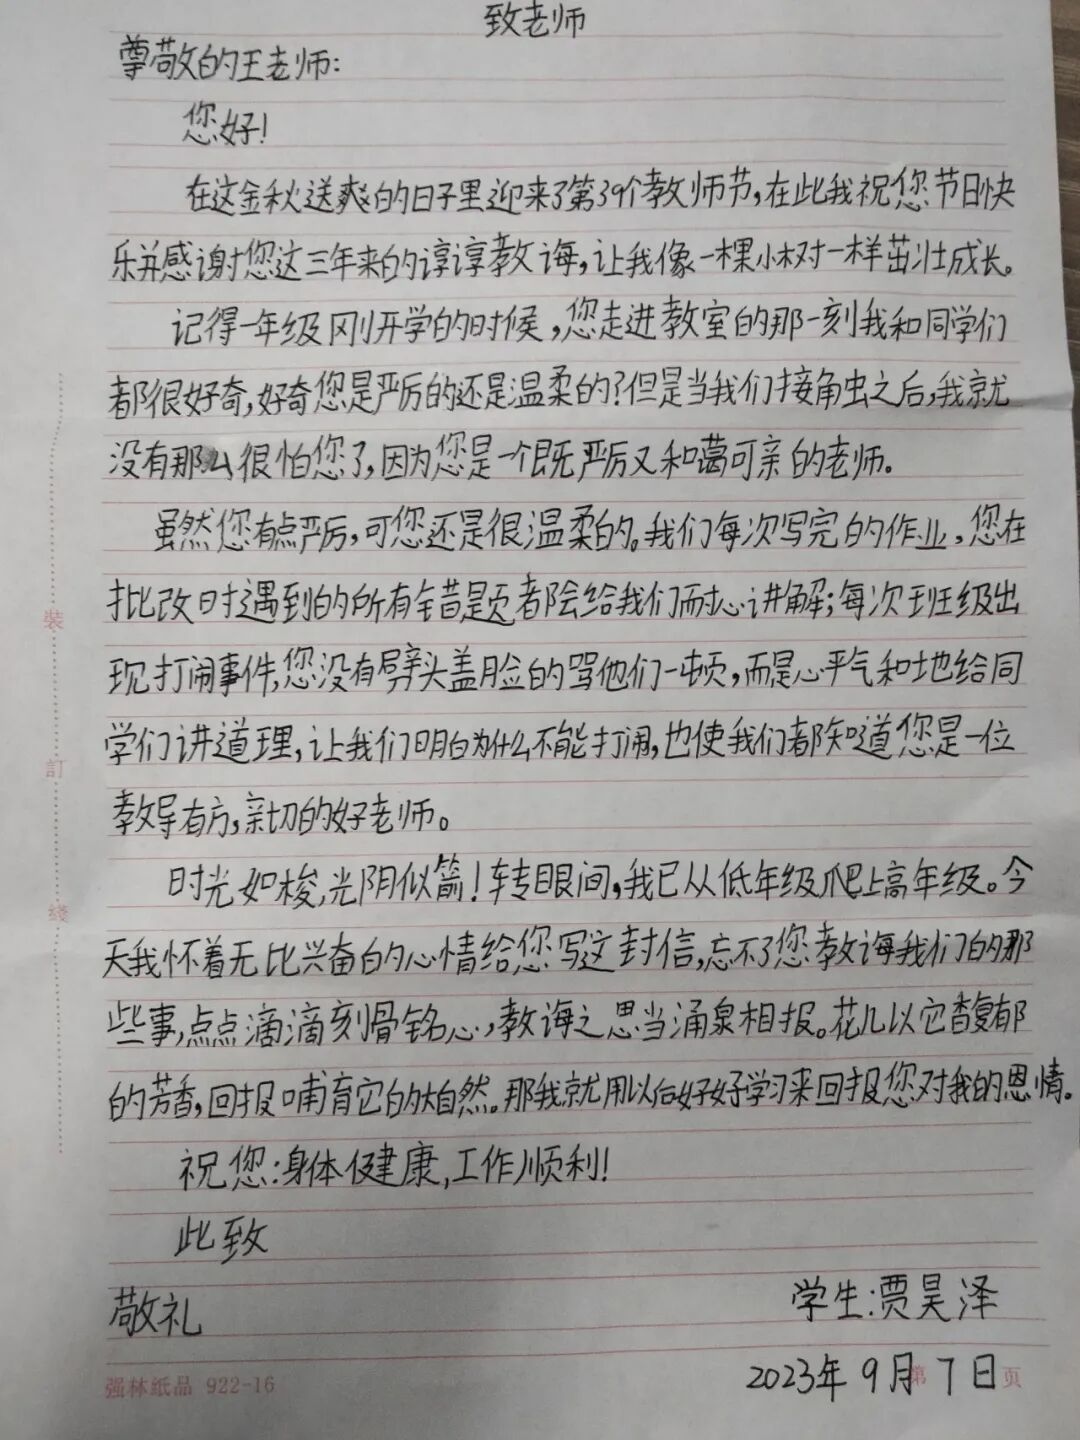 致老师
尊敬的王老师:
您好!
在这金秋送爽的日子里迎来了第39个教师节,在此我祝您节日快
乐并感谢您这三年来的谆谆教诲,让我像一棵小树一样茁壮成长。
记得一年级刚开学的时候,您走进教室的那一刻我和同学们
都很好奇,好奇您是严厉的还是温柔的?但是当我们接触之后,我就
没有那么很怕您了,因为您是一个既严厉又和蔼可亲的老师。
虽然您有点严厉,可您还是很温柔的。我们每次写完的作业,您在
批改时遇到的所有错题都会给我们耐心讲解;每次班级出
现打闹事件,您没有劈头盖脸的骂他们一顿,而是心平气和地给同
学们讲道理,让我们明白为什么不能打闹,也使我们都知道您是一位
教导有方,亲切的好老师。
时光如梭,光阴似箭!转眼间,我已从低年级爬上高年级。今
天我怀着无比兴奋的心情给您写这封信,忘不了您教诲我们的那
些事,点点滴滴刻骨铭心,教诲之恩当涌泉相报。花儿以它香馥郁
的芳香,回报哺育它的大自然。那我就用以后好好学习来回报您对我的恩情。
祝您:身体健康,工作顺利!
此致
敬礼
学生:贾昊泽
2023年9月7日
第 页
强林纸品 922-16
装
訂
綫